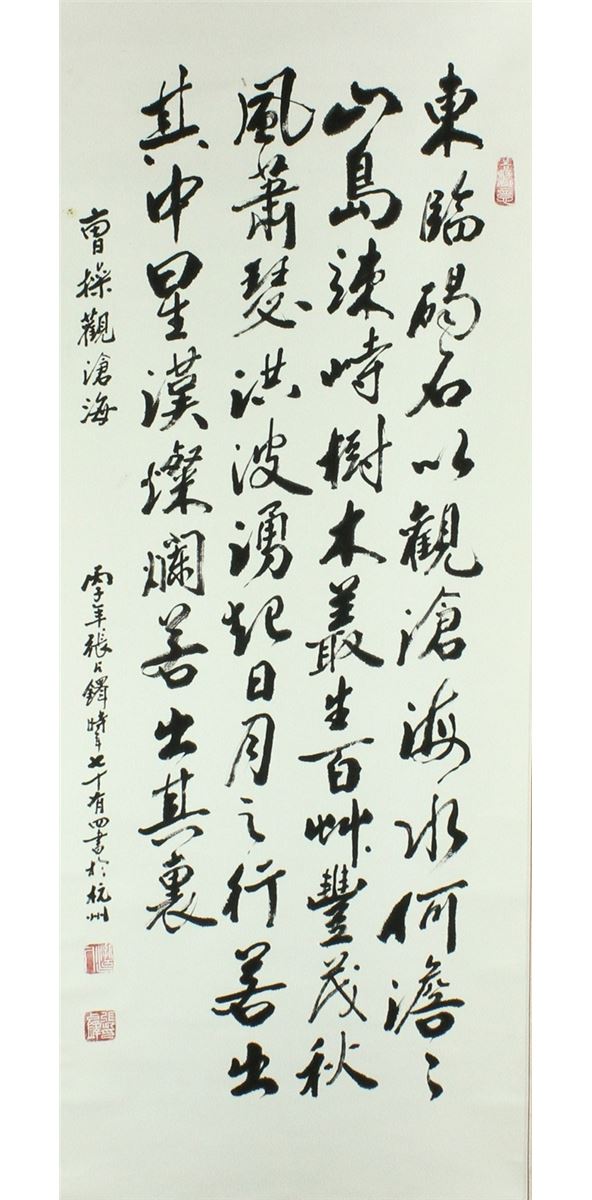 東臨碣石以觀滄海水何澹〻
山島竦峙樹木叢生百艸豐茂秋
風蕭瑟洪波湧起日月之行若出
其中星漢燦爛若出其裏
曹操觀滄海
丙子年張占鐸時年七十有四書於杭州